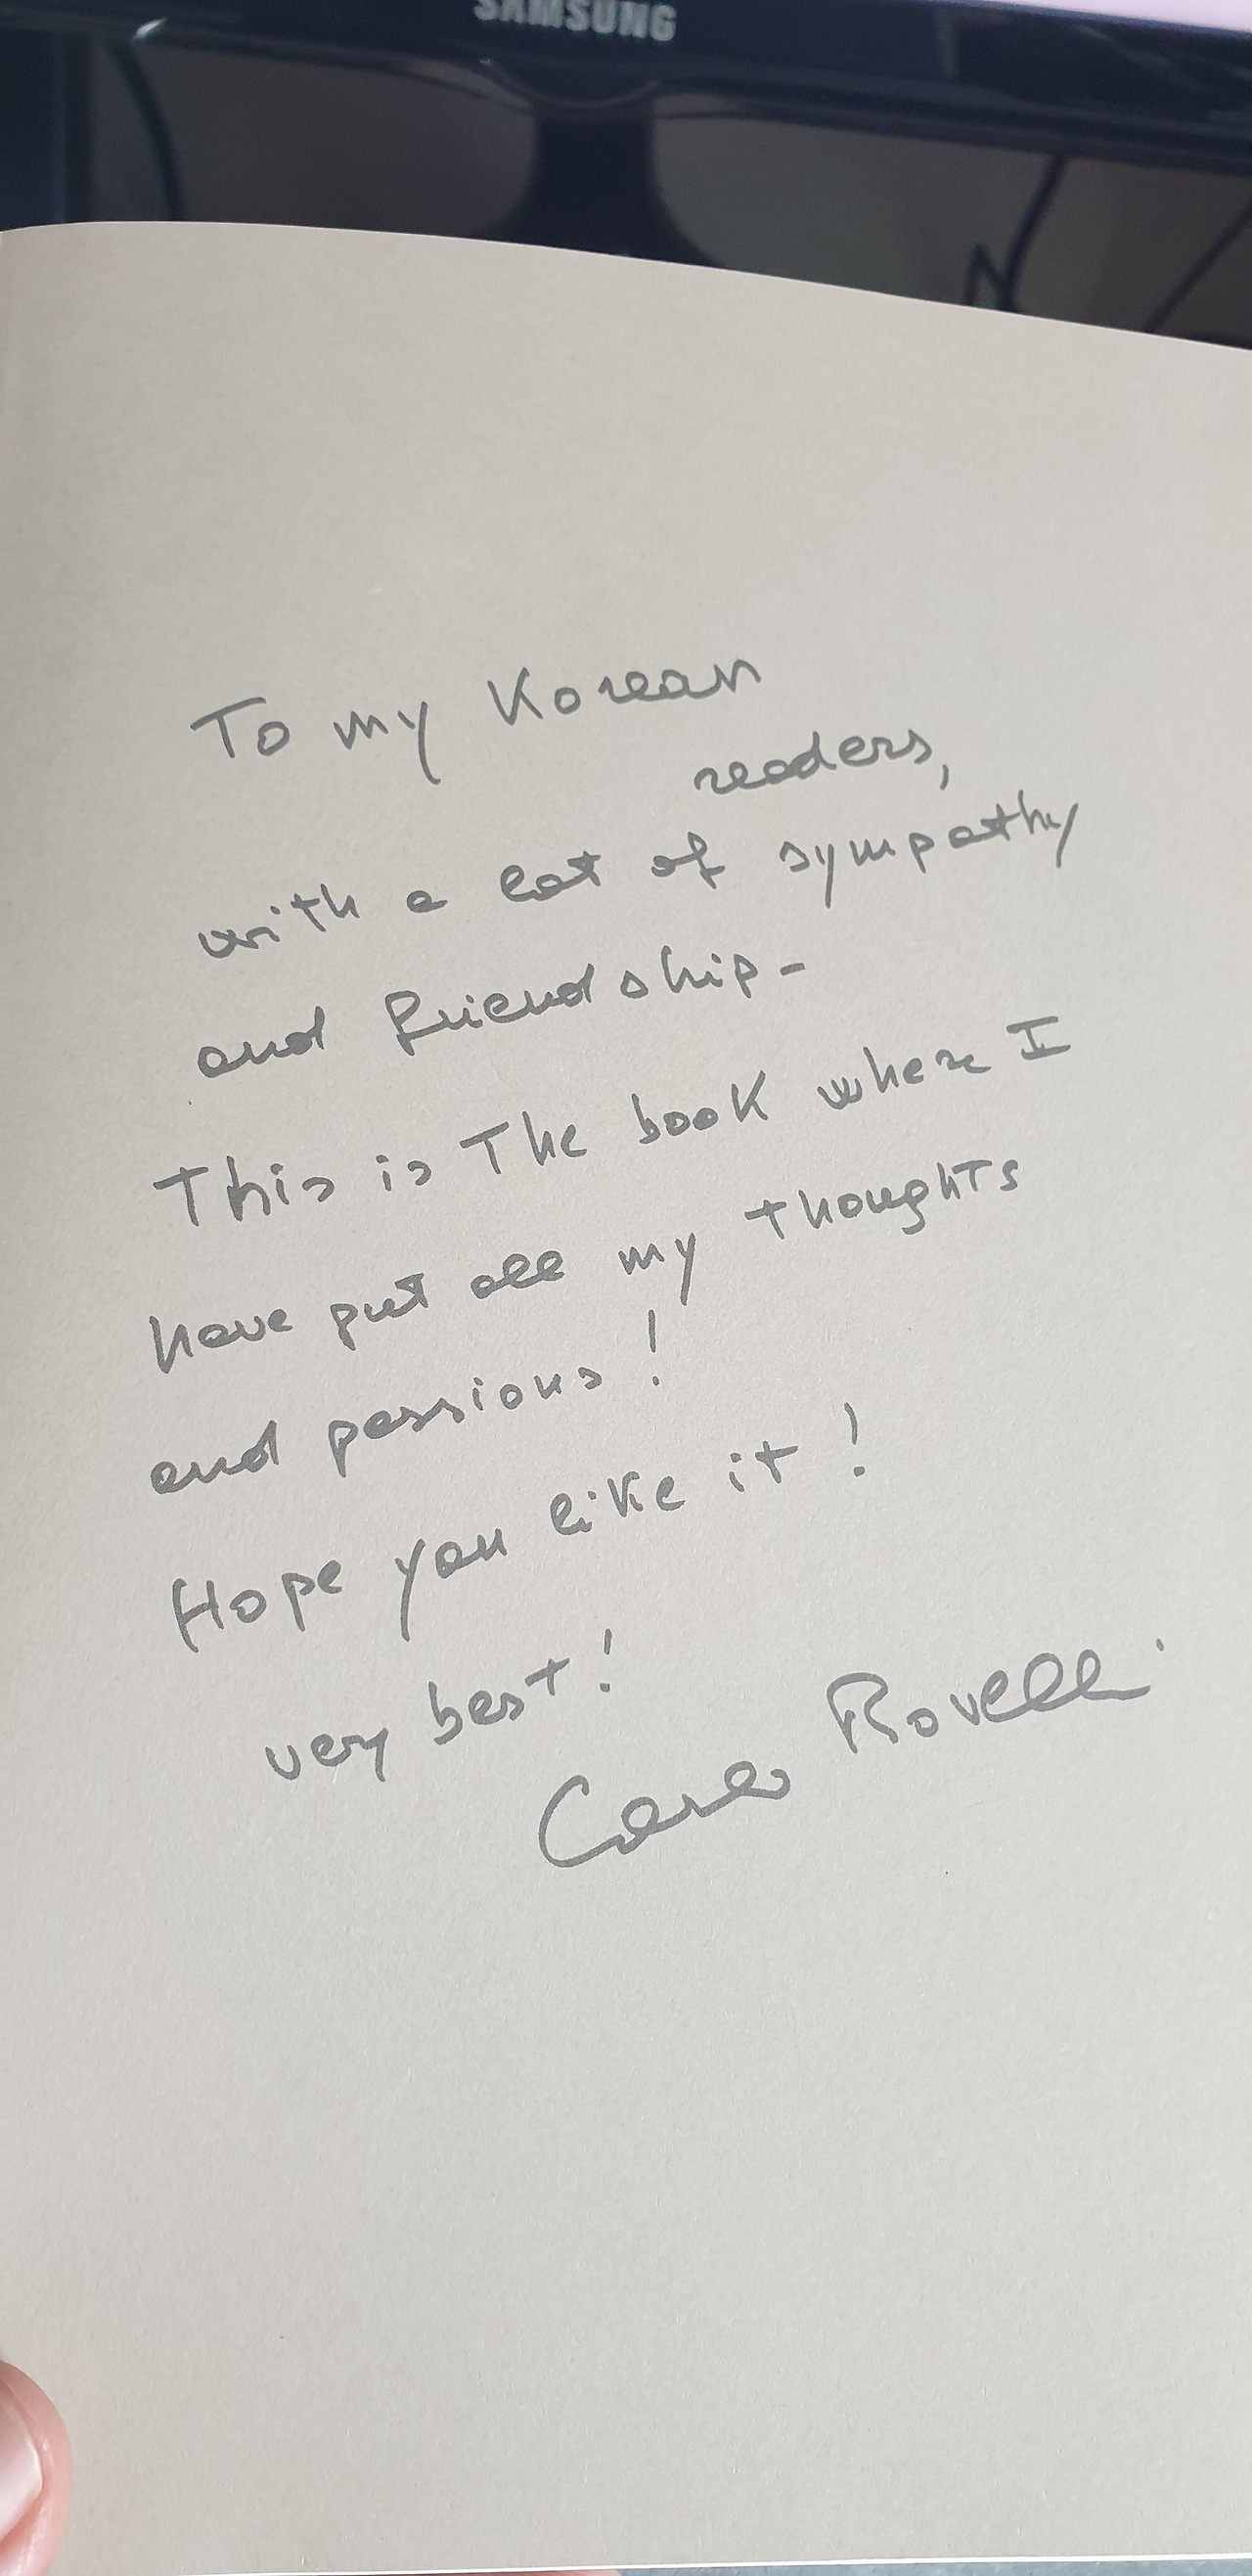 SAMSUNG
To my Korean
readers,
with a lot of sympathy
and friendship-
This is The book where I
have put all my thoughts
and passions!
Hope you like it!
very best!
Carlo Rovelli